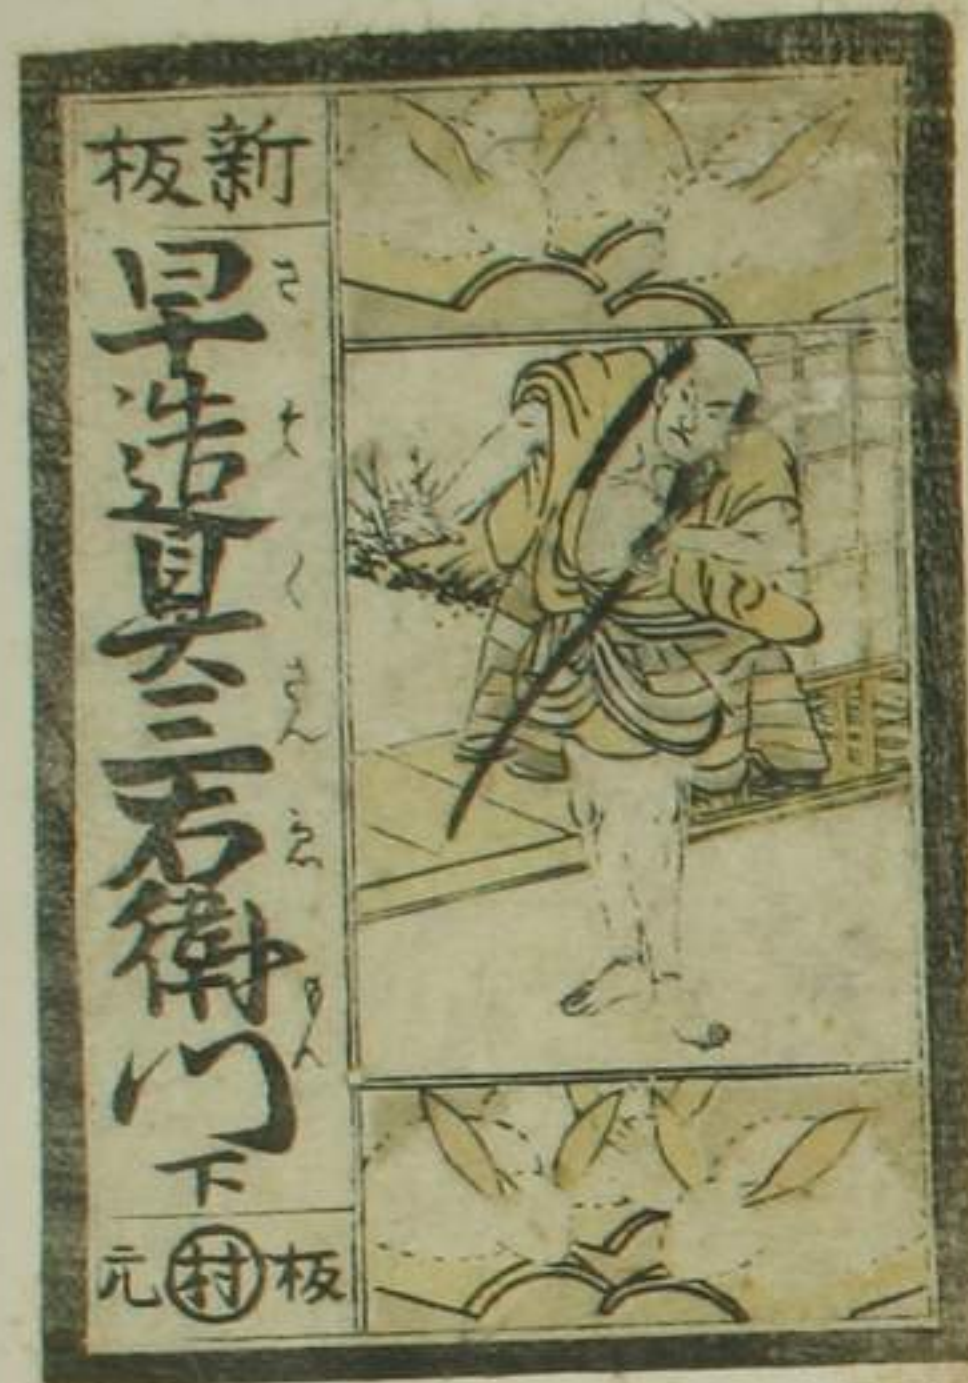 新板
早造具三右衛門下
さ
く
さん
ゑもん
板村元